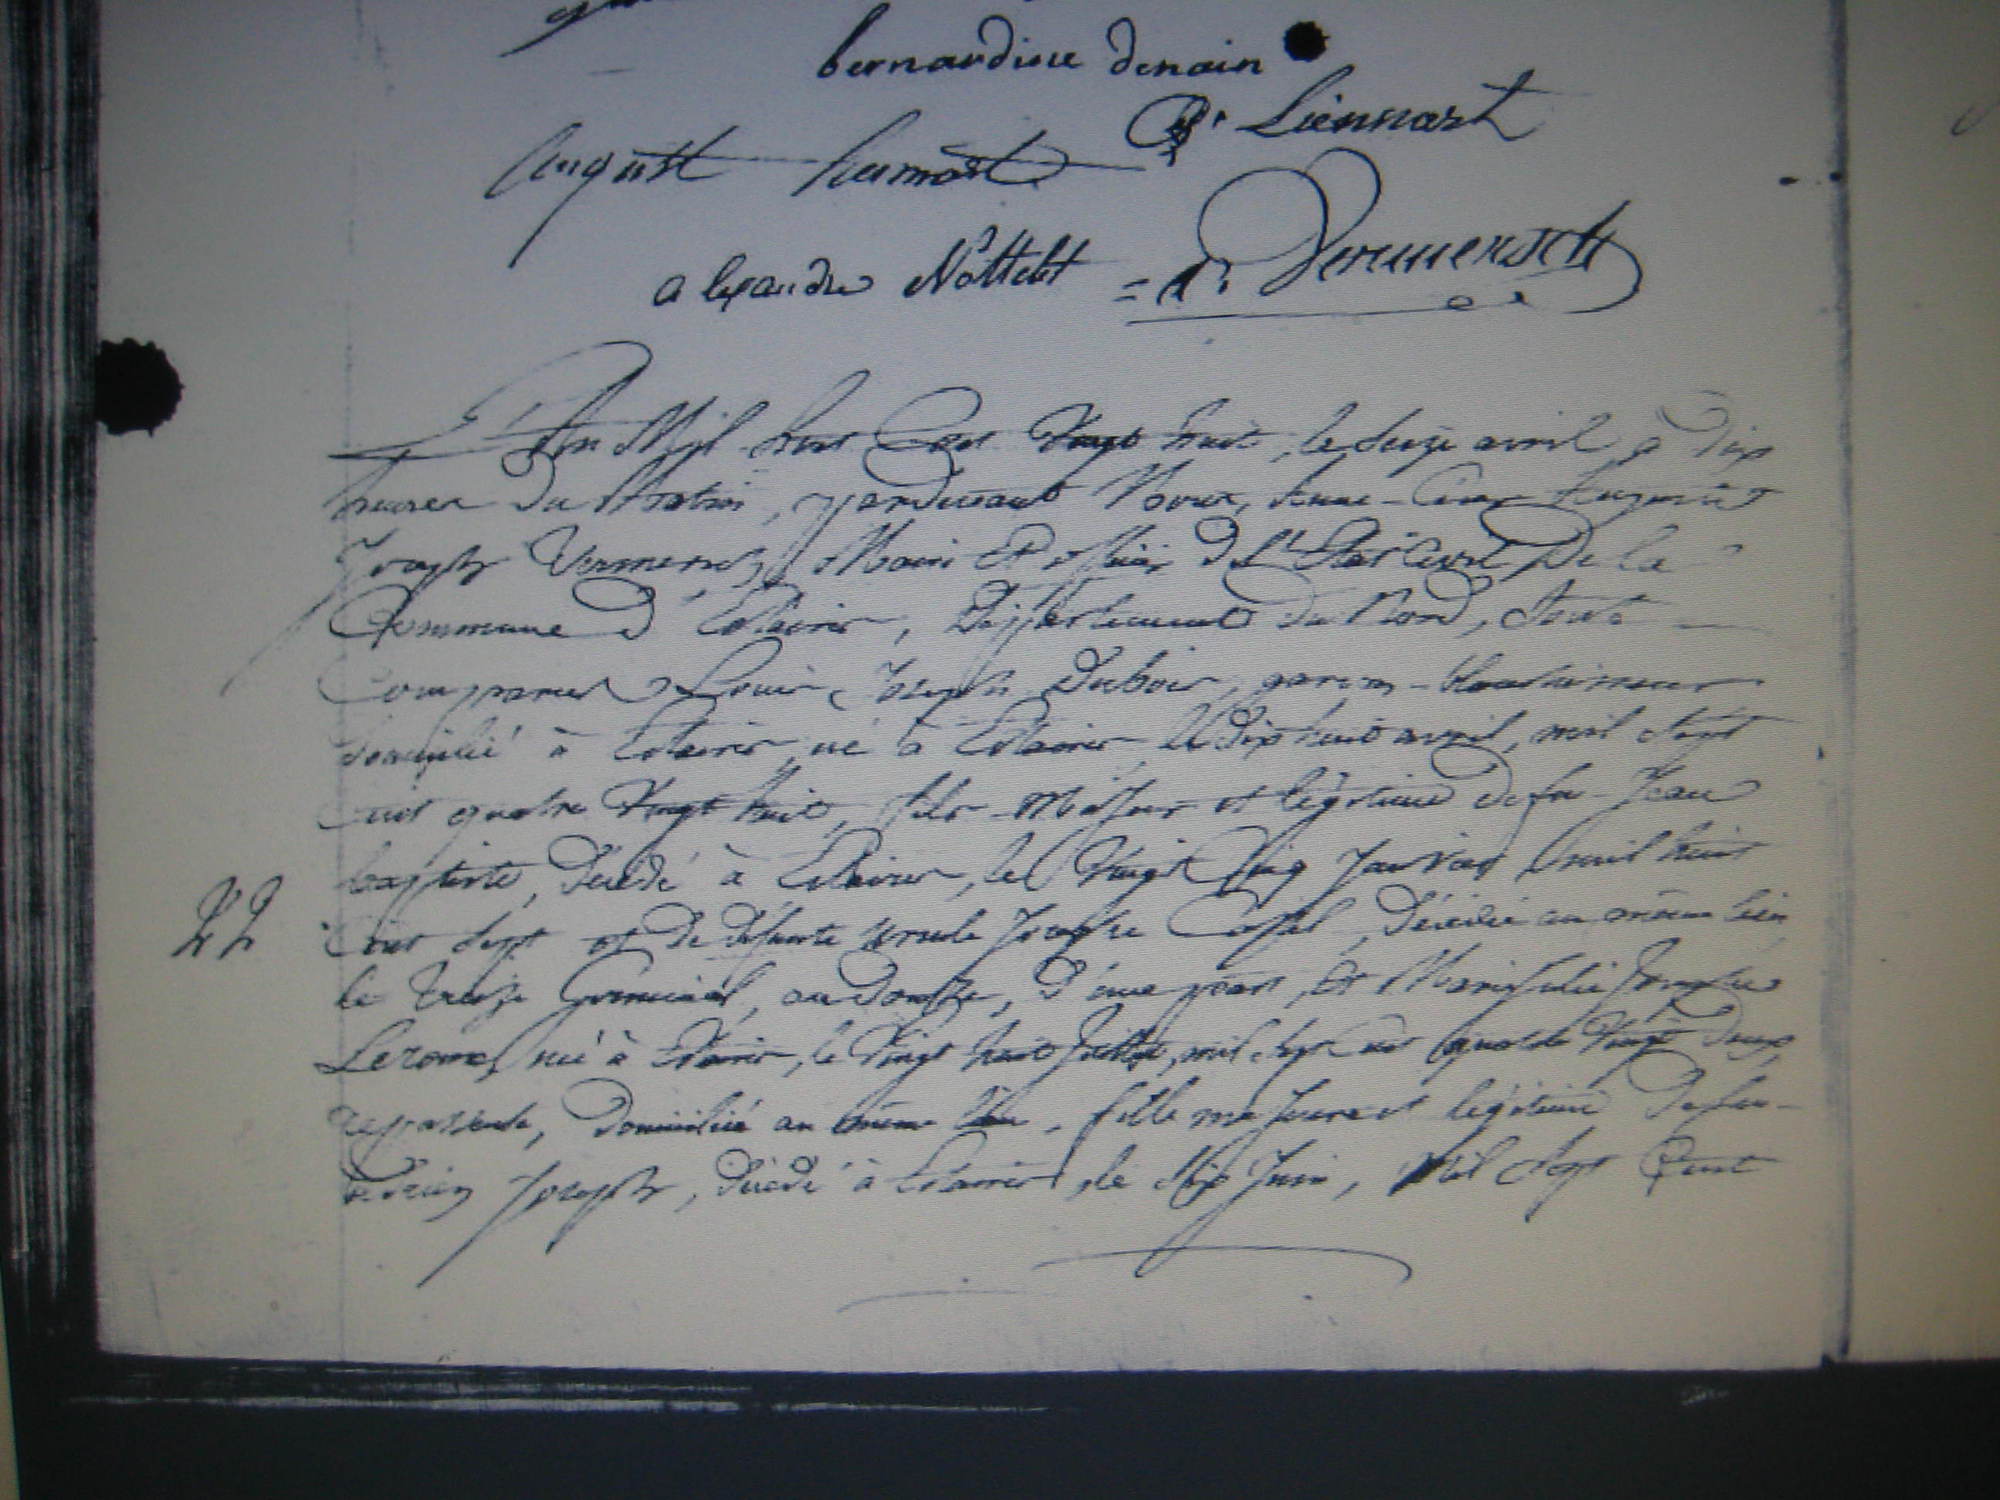 bernardine denain
Liennart
August
alexandre Nottebt = Vermersch
L'An Mil huit Cent Vingt huit, le seize avril à dix
heures du Matin, pardevant Nous,
Joseph Vermersch, Maire et officier de l'Etat Civil De la
Commune d'Estaires, Département du Nord, sont
comparus Louis Joseph Dubois, garçon
domicilié à Estaires, né à Estaires le dix huit avril, mil sept
cent quatre Vingt huit, fils Majeur et légitime de feu Jean
baptiste, décédé à Estaires, le Vingt cinq Janvier mil huit
22
Cent sept et de défunte ursule Josephe décédée au même lieu
le treize Germinal, an douze, d'une part, Et Marie Julie Josephe
Leroux, née à Estaires, le Vingt huit Juillet, mil sept cent quatre Vingt deux,
domiciliée au même lieu, fille majeure et légitime de feu
Joseph, décédé à Estaires, le dix Juin, Mil sept Cent